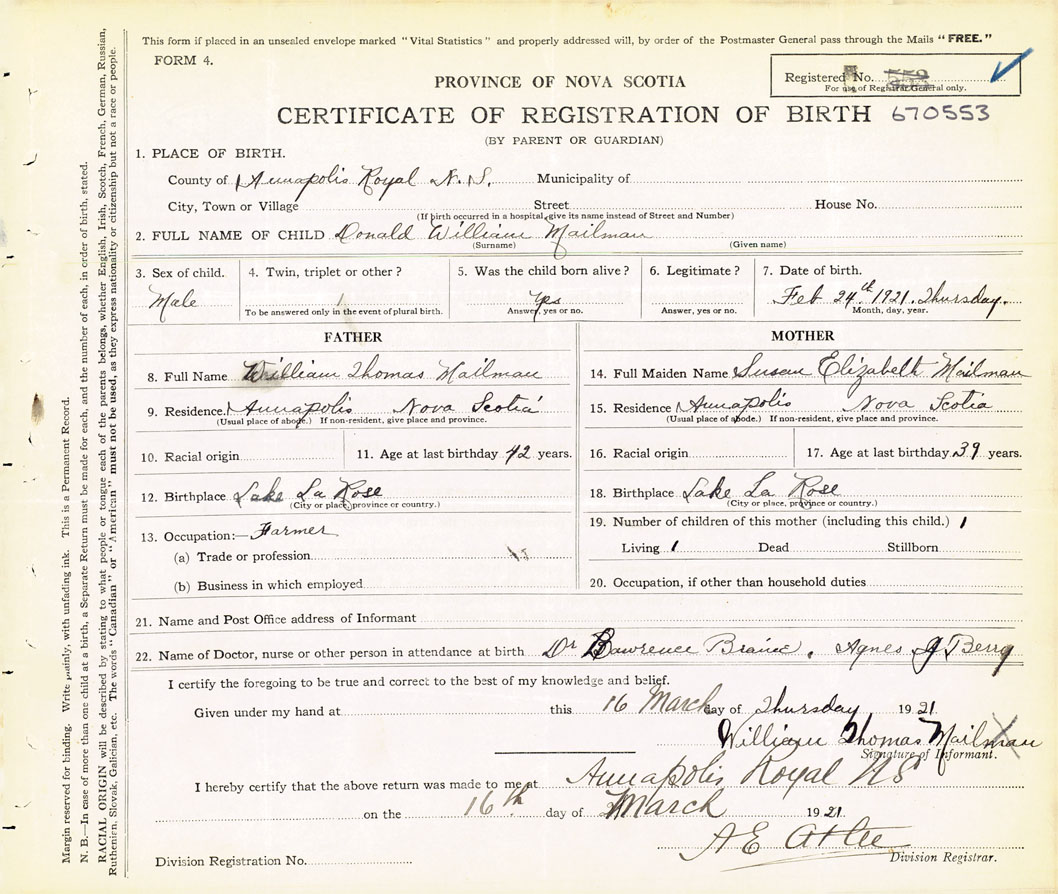 This form if placed in an unsealed envelope marked "Vital Statistics" and properly addressed will, by order of the Postmaster General pass through the Mails "FREE."
FORM 4.
Registered No.
For use of Registrar General only.
PROVINCE OF NOVA SCOTIA
CERTIFICATE OF REGISTRATION OF BIRTH 670553
(BY PARENT OR GUARDIAN)
1. PLACE OF BIRTH.
County of Annapolis Royal N.S. Municipality of
City, Town or Village Street House No.
(If birth occurred in a hospital, give its name instead of Street and Number)
2. FULL NAME OF CHILD Donald William Mailman
(Surname) (Given name)
3. Sex of child. 4. Twin, triplet or other? 5. Was the child born alive? 6. Legitimate? 7. Date of birth.
Male 1 Yes Feb 24th 1921. Thursday.
To be answered only in the event of plural birth. Answer, yes or no. Answer, yes or no. Month, day, year.
FATHER MOTHER
8. Full Name William Thomas Mailman 14. Full Maiden Name Susan Elizabeth Mailman
9. Residence. Annapolis Nova Scotia 15. Residence Annapolis Nova Scotia
(Usual place of abode.) If non-resident, give place and province. (Usual place of abode.) If non-resident, give place and province.
10. Racial origin 11. Age at last birthday 42 years. 16. Racial origin 17. Age at last birthday 39 years.
12. Birthplace Lake La Rose 18. Birthplace Lake La Rose
(City or place, province or country.) (City or place, province or country.)
13. Occupation:— Farmer 19. Number of children of this mother (including this child.) 1
(a) Trade or profession Living 1 Dead Stillborn
(b) Business in which employed 20. Occupation, if other than household duties
21. Name and Post Office address of Informant
22. Name of Doctor, nurse or other person in attendance at birth Dr Lawrence Braine, Agnes J Berry
I certify the foregoing to be true and correct to the best of my knowledge and belief.
Given under my hand at this 16 March day of Thursday 1921
William Thomas Mailman
Signature of Informant.
I hereby certify that the above return was made to me at Annapolis Royal NS
on the 16th day of March 1921
A E
Division Registrar.
Division Registration No.
Margin reserved for binding. Write plainly, with unfading ink. This is a Permanent Record.
N. B.—In case of more than one child at a birth, a Separate Return must be made for each, and the number of each, in order of birth, stated.
RACIAL ORIGIN will be described by stating to what people or tongue each of the parents belongs, whether English, Irish, Scotch, French, German, Russian,
Ruthenian, Slovak, Galician, etc. The words "Canadian" or "American" must not be used, as they express nationality or citizenship but not a race or people.